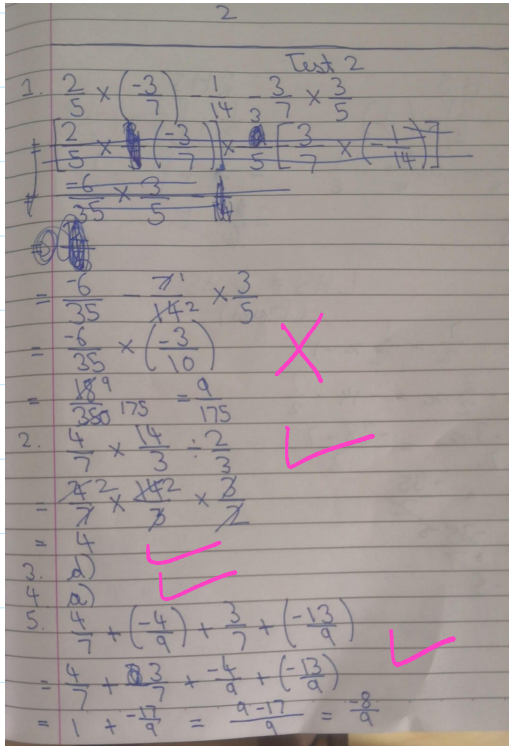 2
Test 2
1. 2/5 × (-3/7) - 1/14 - 3/7 × 3/5
= [2/5 × (-3/7)] × 3/5 [3/7 × (-1/14)]
= -6/35 × 3/5 -
= -6/35 - 7 1/14 2 × 3/5
= -6/35 × (-3/10)
= 18 9/350 175 = 9/175
2. 4/7 × 14/3 ÷ 2/3
= 4 2/7 × 14 2/3 × 3/2
= 4
3. d)
4 a)
5. 4/7 + (-4/9) + 3/7 + (-13/9)
= 4/7 + 3/7 + -4/9 + (-13/9)
= 1 + -17/9 = 9-17/9 = -8/9